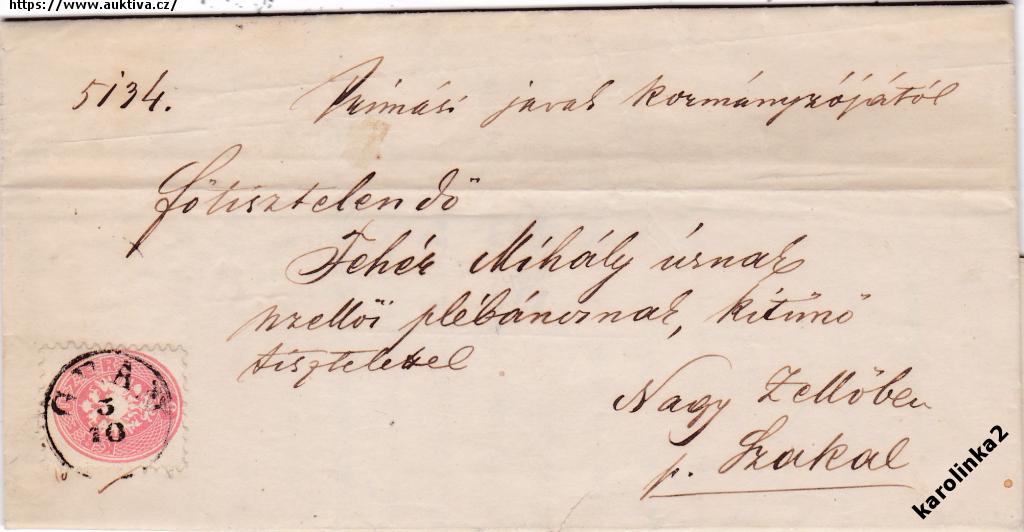 https://www.auktiva.cz/
5134.
Prímási javak kormányzójától
főtisztelendő
Fehér Mihály úrnak
nzellői plébánosnak, kitűnő
tisztelettel
GRAN
5
10
Nagy Zellőben
p. Szakal
karolinka2